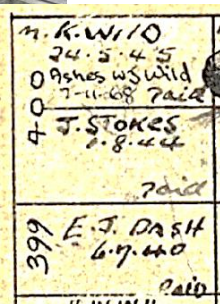 M. K. WILD
24.5.45
Ashes W J Wild
7-11-68 Paid
400
J. STOKES
1.8.44
Paid
399
E. J. DASH
6.7.40
Paid